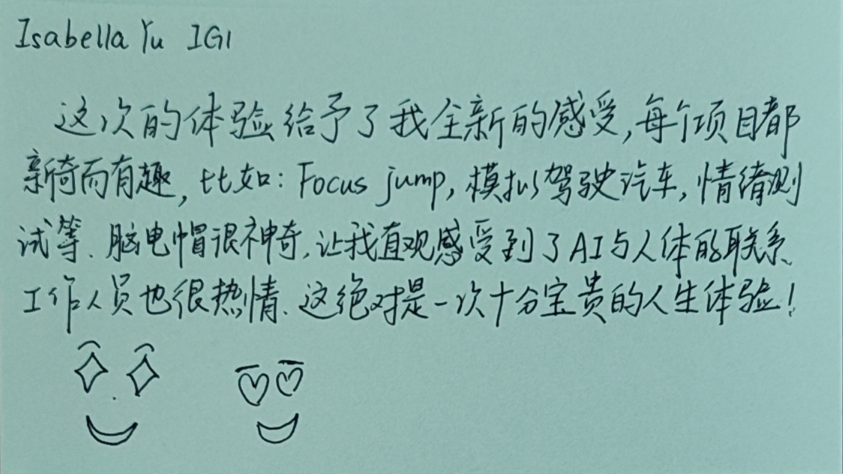 Isabella Yu IG1
这次的体验给予了我全新的感受,每个项目都
新奇而有趣,比如:Focus jump,模拟驾驶汽车,情绪测
试等.脑电帽很神奇,让我直观感受到了AI与人体的联系.
工作人员也很热情.这绝对是一次十分宝贵的人生体验!